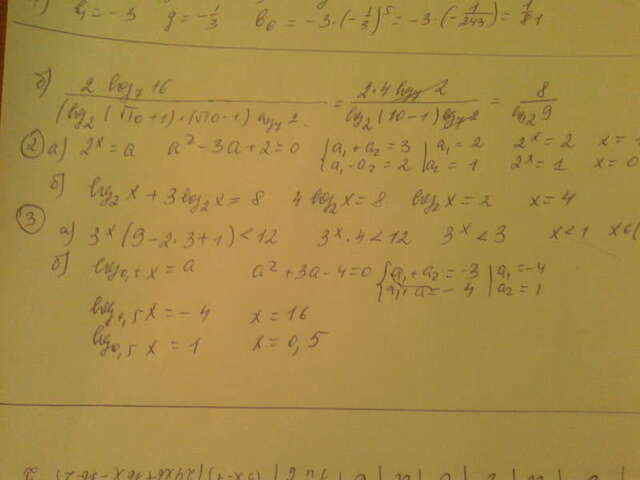 b₁ = -3 q = -1/3 b₆ = -3·(-1/3)⁵ = -3·(-1/243) = 1/81
б) 2 log₇ 16 / (log₂(√10+1)·(√10-1) log₇ 2 = 2·4 log₇ 2 / log₂(10-1) log₇ 2 = 8 / log₂ 9
② а) 2ˣ = a a² - 3a + 2 = 0 { a₁ + a₂ = 3 | a₁ = 2 2ˣ = 2 x = 1
a₁ · a₂ = 2 | a₂ = 1 2ˣ = 1 x = 0
б) log₂ x + 3 log₂ x = 8 4 log₂ x = 8 log₂ x = 2 x = 4
③
а) 3ˣ (9 - 2·3 + 1) < 12 3ˣ · 4 < 12 3ˣ < 3 x < 1
б) a² + 3a - 4 = 0 { a₁ + a₂ = -3 | a₁ = -4
= -4 | a₂ = 1
log₀,₅ x = -4 x = 16
log₀,₅ x = 1 x = 0,5